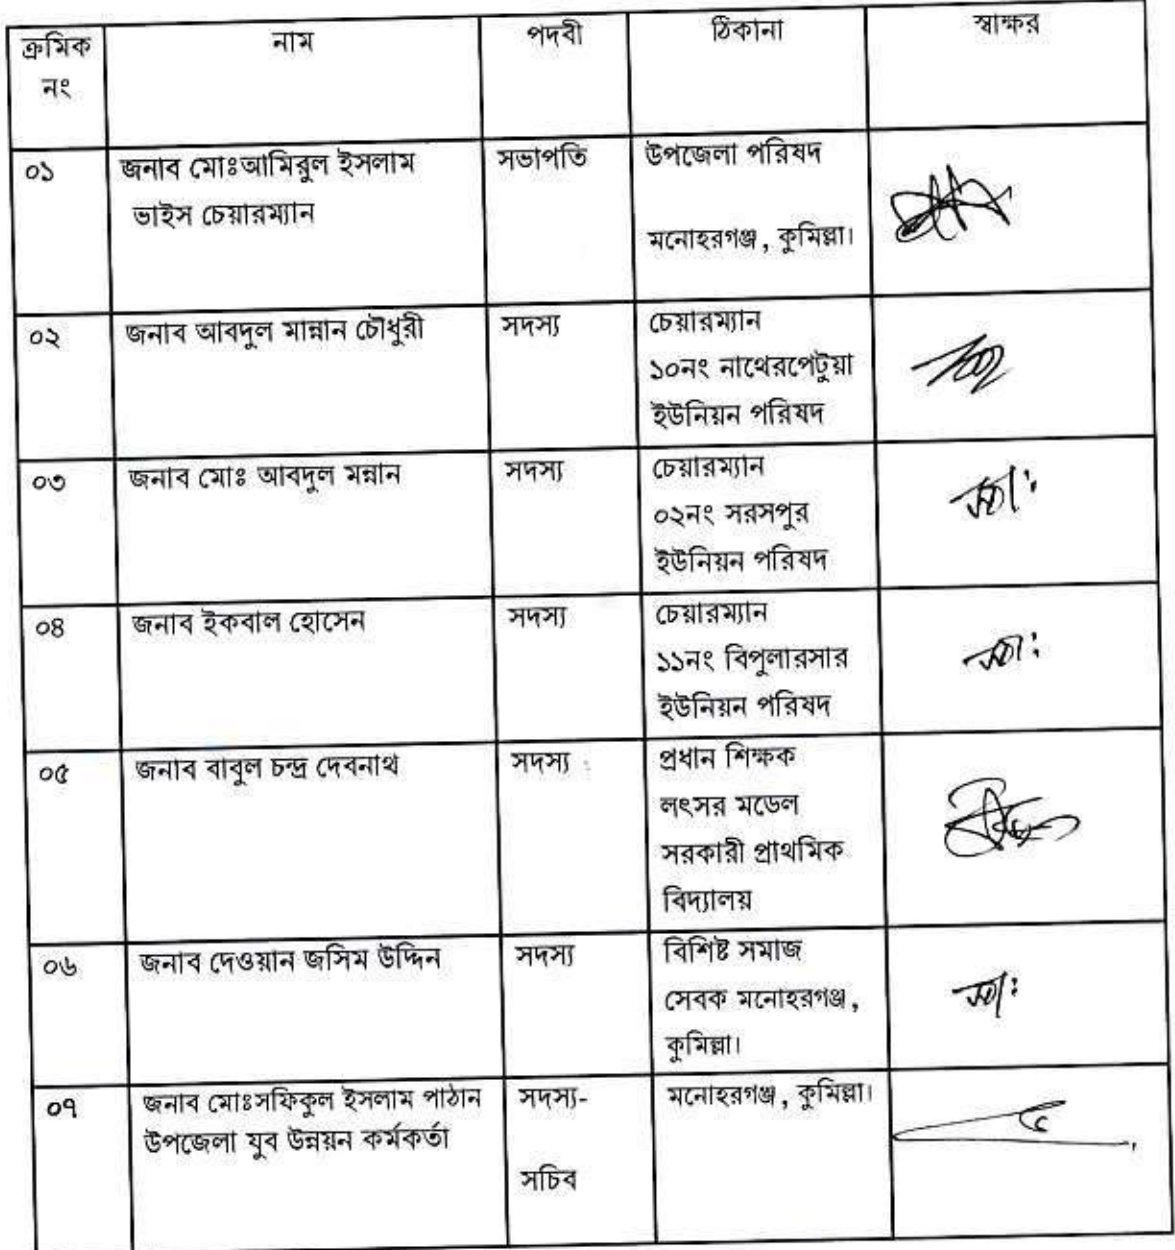 ক্রমিক নাম পদবী ঠিকানা স্বাক্ষর
নং
০১ জনাব মোঃআমিরুল ইসলাম সভাপতি উপজেলা পরিষদ
ভাইস চেয়ারম্যান
মনোহরগঞ্জ, কুমিল্লা।
০২ জনাব আবদুল মান্নান চৌধুরী সদস্য চেয়ারম্যান
১০নং নাথেরপেটুয়া
ইউনিয়ন পরিষদ
০৩ জনাব মোঃ আবদুল মন্নান সদস্য চেয়ারম্যান
০২নং সরসপুর
ইউনিয়ন পরিষদ
০৪ জনাব ইকবাল হোসেন সদস্য চেয়ারম্যান
১১নং বিপুলারসার
ইউনিয়ন পরিষদ
০৫ জনাব বাবুল চন্দ্র দেবনাথ সদস্য প্রধান শিক্ষক
লৎসর মডেল
সরকারী প্রাথমিক
বিদ্যালয়
০৬ জনাব দেওয়ান জসিম উদ্দিন সদস্য বিশিষ্ট সমাজ
সেবক মনোহরগঞ্জ,
কুমিল্লা।
০৭ জনাব মোঃসফিকুল ইসলাম পাঠান সদস্য- মনোহরগঞ্জ, কুমিল্লা।
উপজেলা যুব উন্নয়ন কর্মকর্তা
সচিব